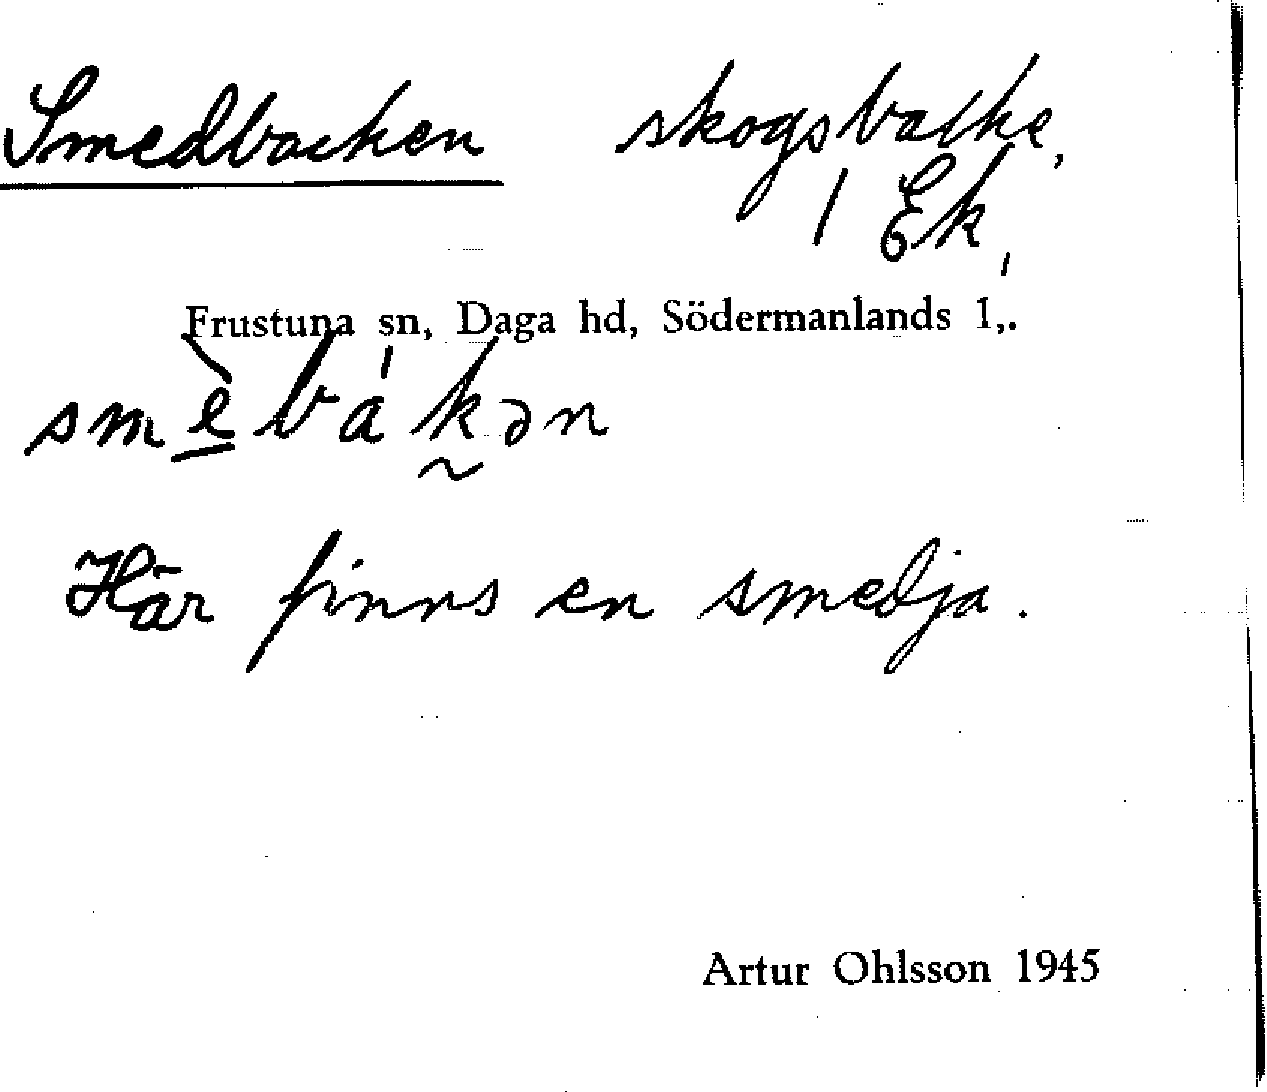 Smedbacken skogsbacke,
1 Ek,
Frustuna sn, Daga hd, Södermanlands l,.
smèbákən
Här finns en smedja.
Artur Ohlsson 1945